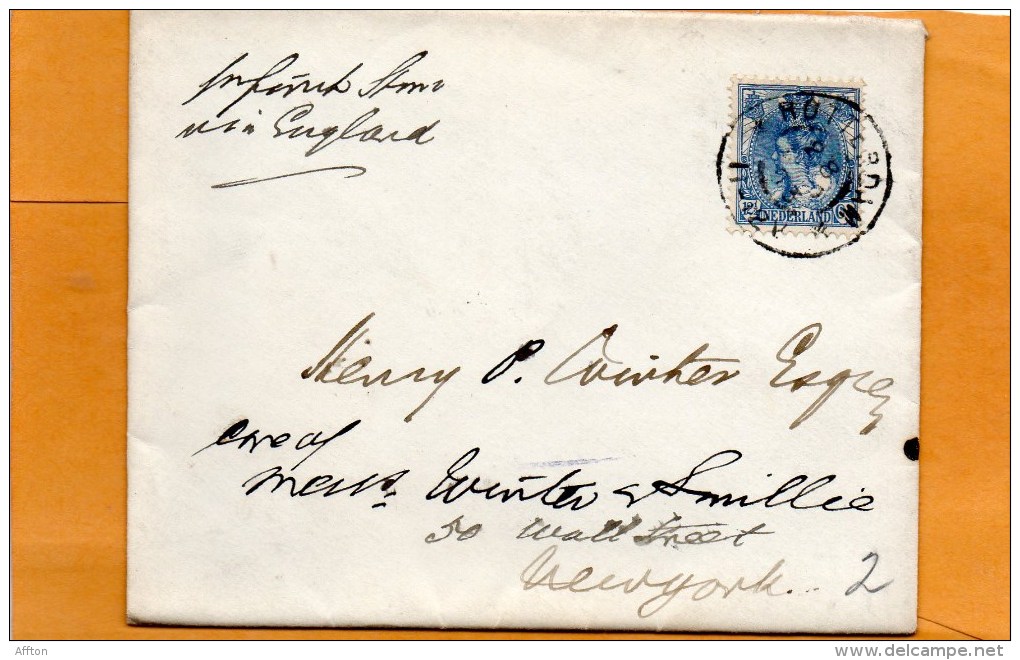 via England
ROTTERDAM
12½
NEDERLAND
Henry P. Winter Esqre
care of
Messrs Winter & Smillie
50 Wall Street
Newyork.. 2
Affton
www.delcampe.net